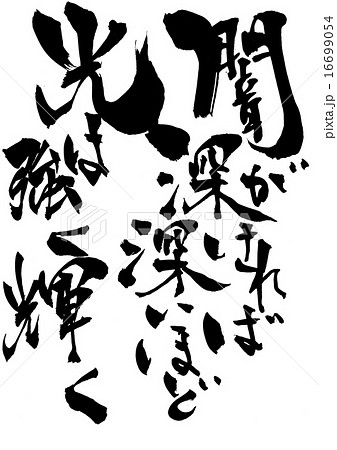 闇が深ければ
深いほど
光は
強く輝く
PIXTA
pixta.jp - 16699054